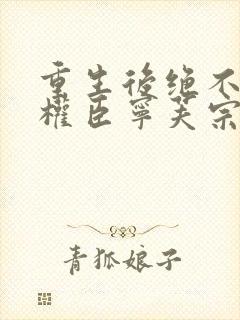 重生後绝不
權臣寧芙宗
青狐娘子